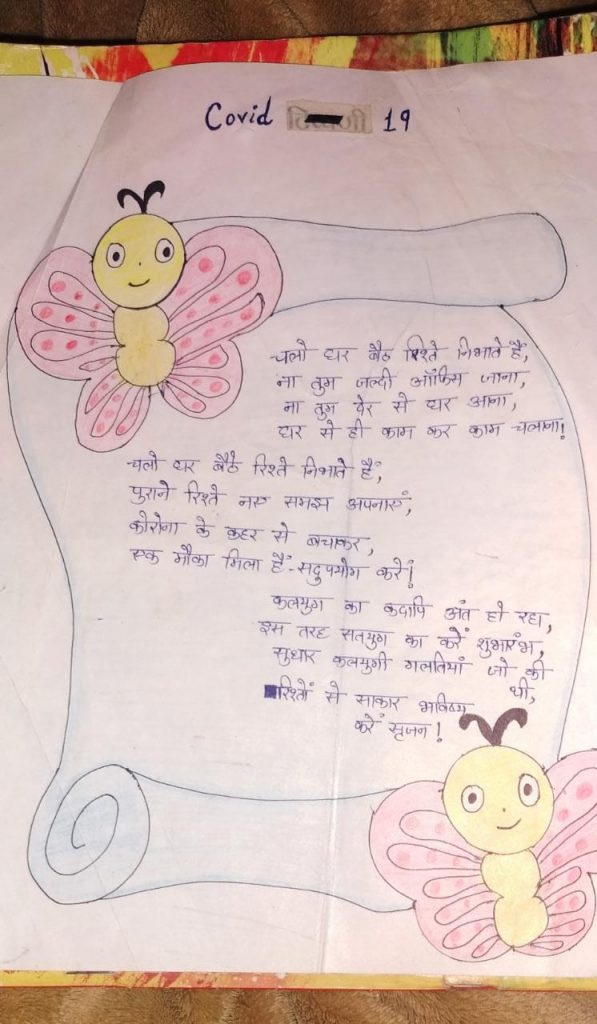 Covid 19
चलो घर बैठ रिश्ते निभाते हैं,
ना तुम जल्दी ऑफिस जाना,
ना तुम देर से घर आना,
घर से ही काम कर काम चलाना!
चलो घर बैठे रिश्ते निभाते हैं,
पुराने रिश्ते नए समझ अपनाएं,
कोरोना के कहर से बचाकर,
एक मौका मिला हैं-सदुपयोग करें!
कलयुग का कदापि अंत हो रहा,
इस तरह सतयुग का करें शुभारंभ,
सुधार कलयुगी गलतियां जो की
थी,
रिश्तों से साकार भविष्य
करें सृजन!